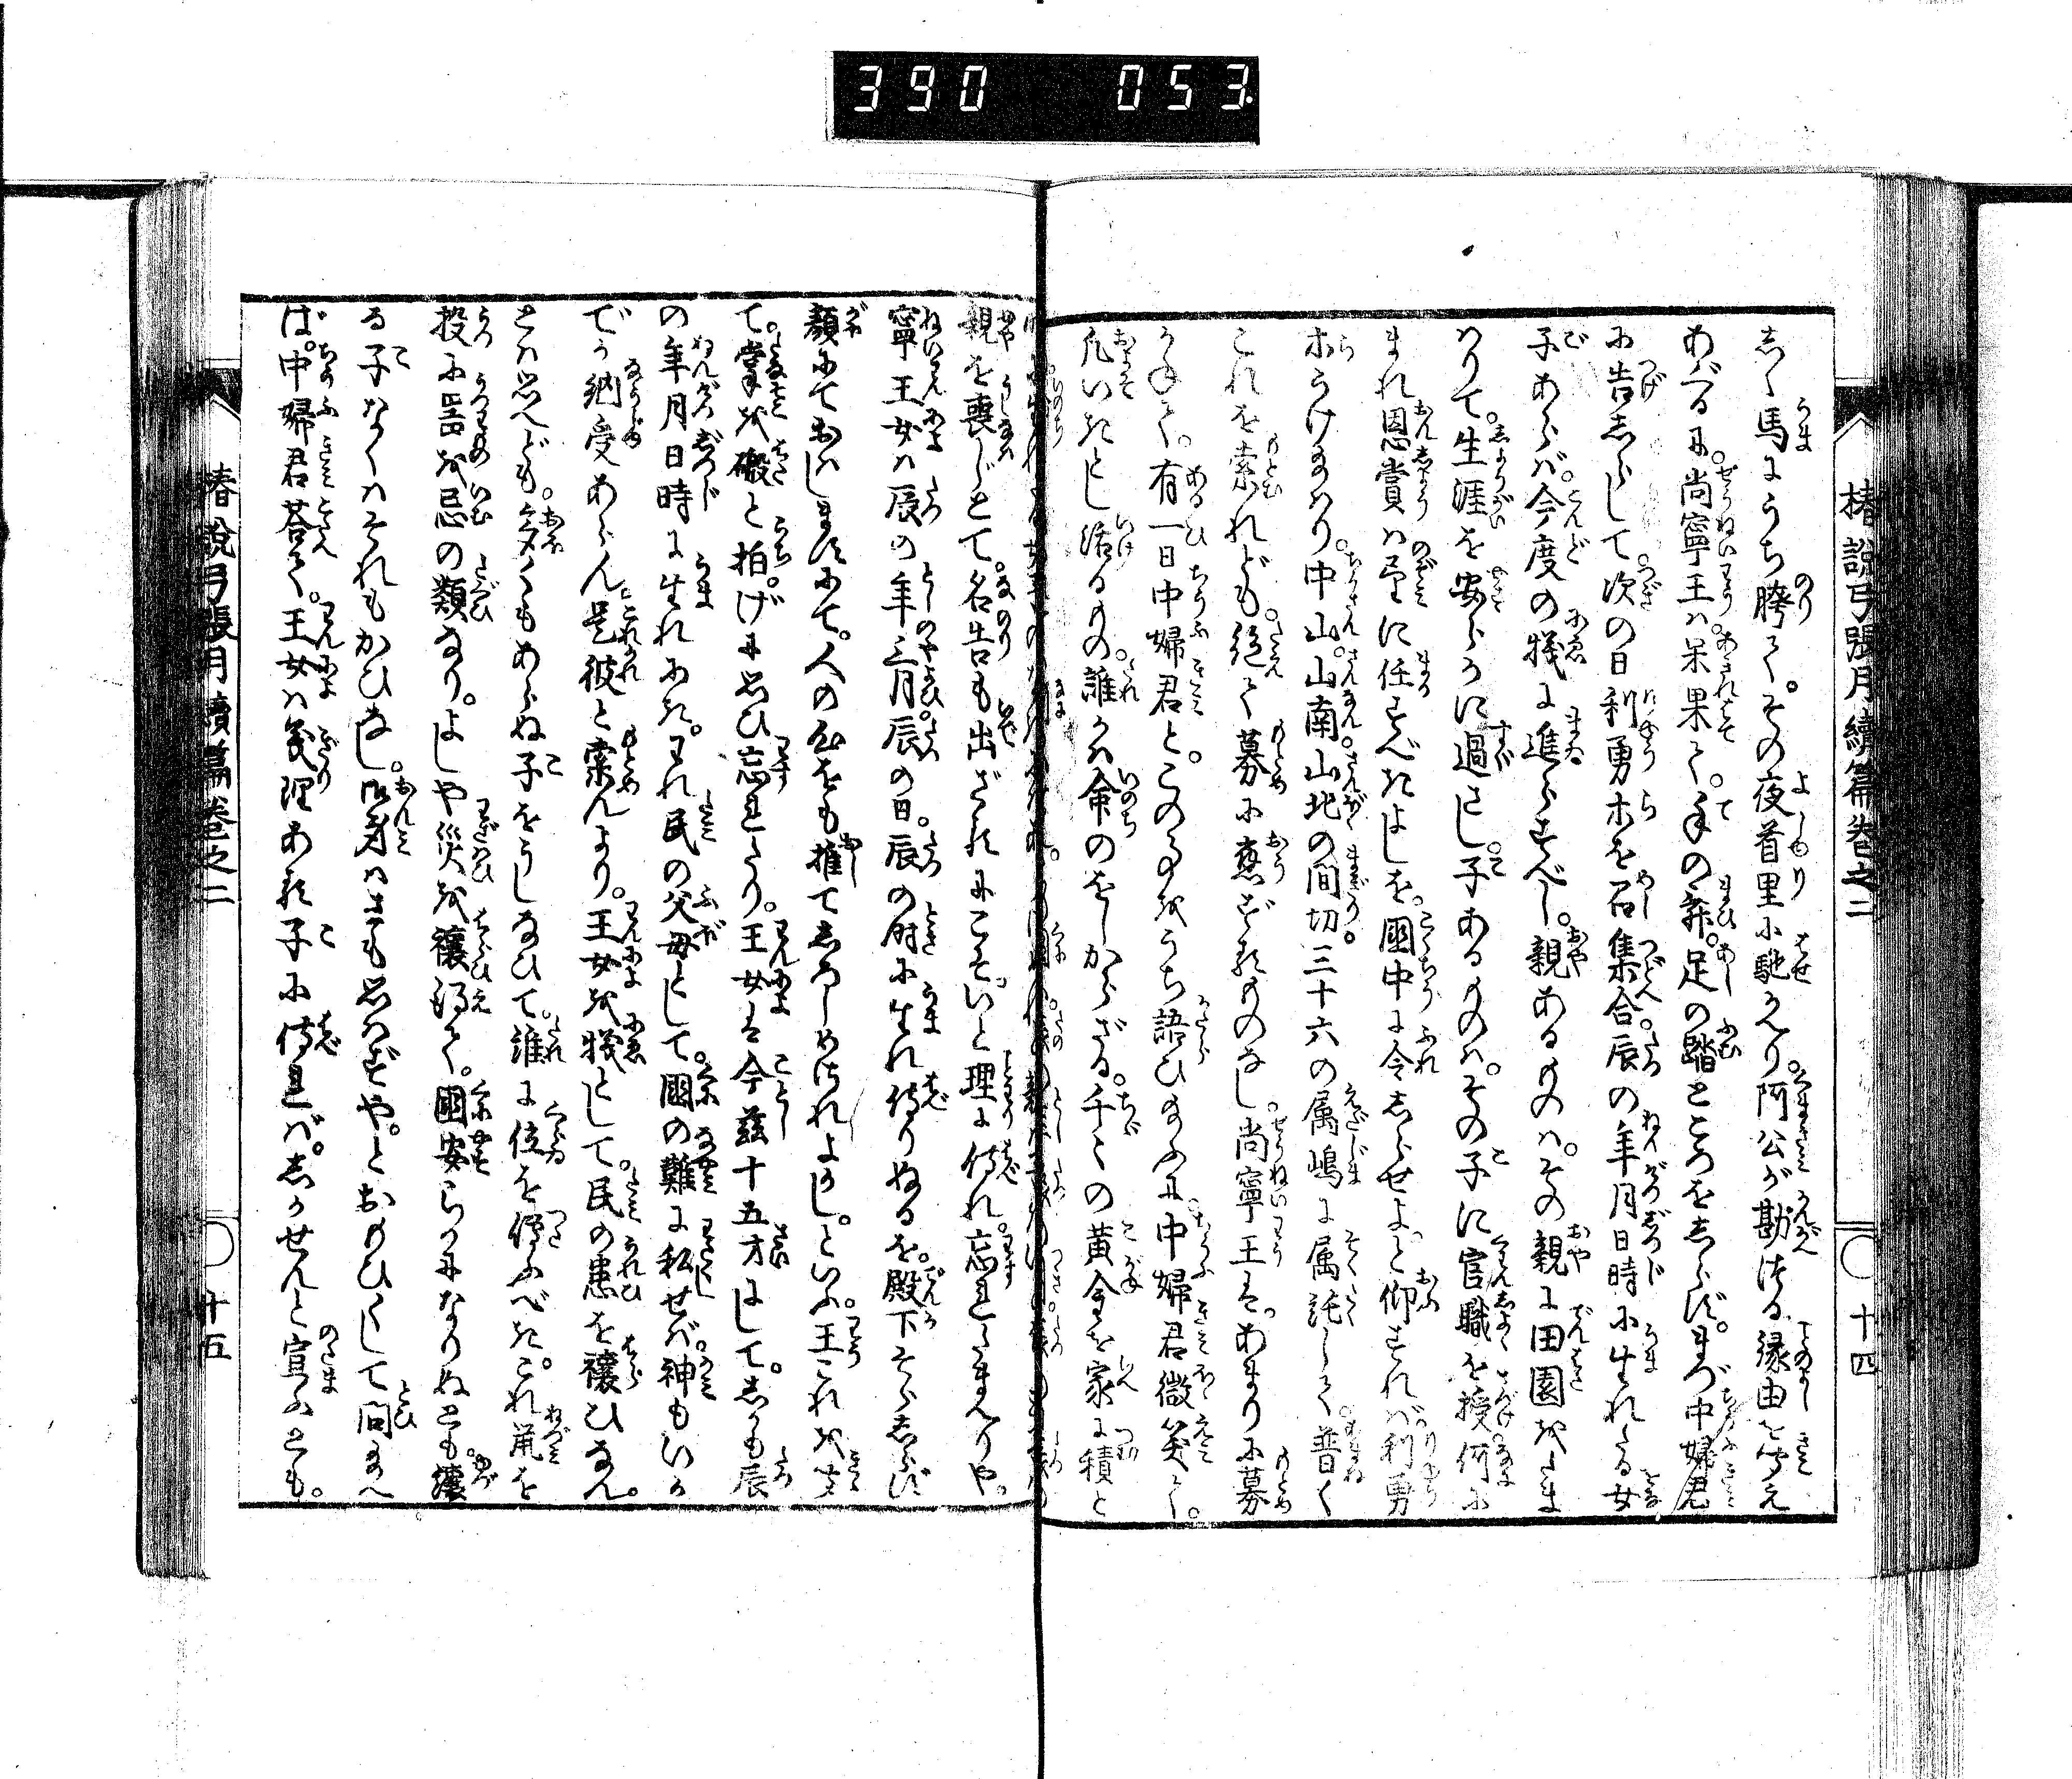 390 053
椿說弓張月續篇卷之二 ○十四
しく馬にうち跨て。その夜首里に馳かへり。阿公が勘つる縁由を聞え
あぐるに。尚寧王は呆果て。手の舞。足の踏ところをしらず。まづ中婦君
に告しらして。次の日利勇ホを召集合。辰の年月日時に生れたる女
子あらば。今度の犠に進らすべし。親あるものは。その親に田園をたま
はりて。生涯を安らかに過さし。子あるものは。その子に官職を授。何に
まれ恩賞は望に任すべきよしを。國中に令しらせよと仰すれば。利勇
ホうけ給はり。中山。山南。山北の間切。三十六の属嶋に属託して。普く
これを索れども。絶て募に應ずるものなし。尚寧王は。あまりに募
かねて。有一日中婦君と。この事をうち語ひ給ふに。中婦君微笑て。
凡いきとし活るもの。誰かは命のをしからざる。千々の黄金を家に積と
親を喪しとて。名告も出ざるにこそ。いと理に侍れ。忘れたまへりや。
寧王女は辰の年三月。辰の日。辰の時に生れ侍りぬるを。殿下そらしらず
顔にておはしますにて。人の心をも推てしろしめされよかし。といふ。王これを聞
て。掌を礑と拍。げに思ひ忘れたり。王女は今茲十五才にして。しかも辰
の年月日時に生れにき。われ民の父母として。國の難に私せば。神もいか
でか納受あらん。是彼と索んより。王女を犠として。民の患を禳ひなん。
とは思へども。多くもあらぬ子をうしなひて。誰に位を傳ふべき。これ鼠を
投に噐を忌の類なり。よしや災を禳得て。國安らかになりぬとも。讓
る子なくはそれもかひなし。御身はさも思はずや。とおもひくして問給へ
ば。中婦君荅て。王女は義理ある子に侍れば。しかせんと宣ふとも。
椿說弓張月續篇卷之二 ○十五